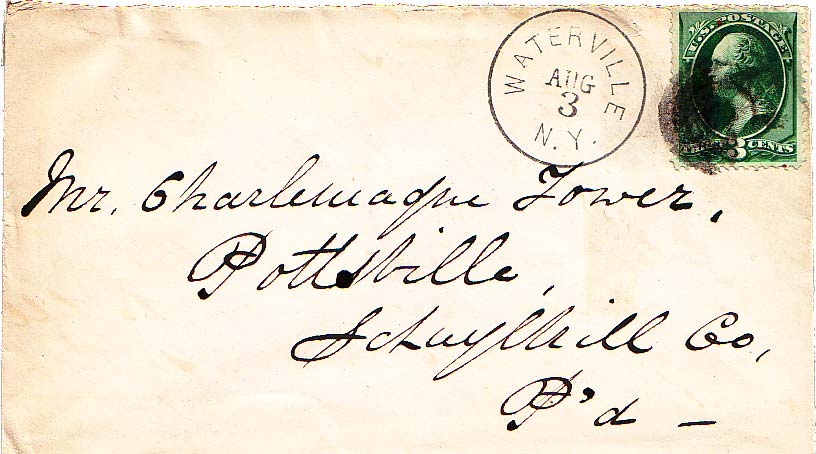 WATERVILLE
AUG
3
N.Y.
U.S. POSTAGE
THREE 3 CENTS
Mr. Charlemagne Tower,
Pottsville,
Schuylkill Co,
P'a —